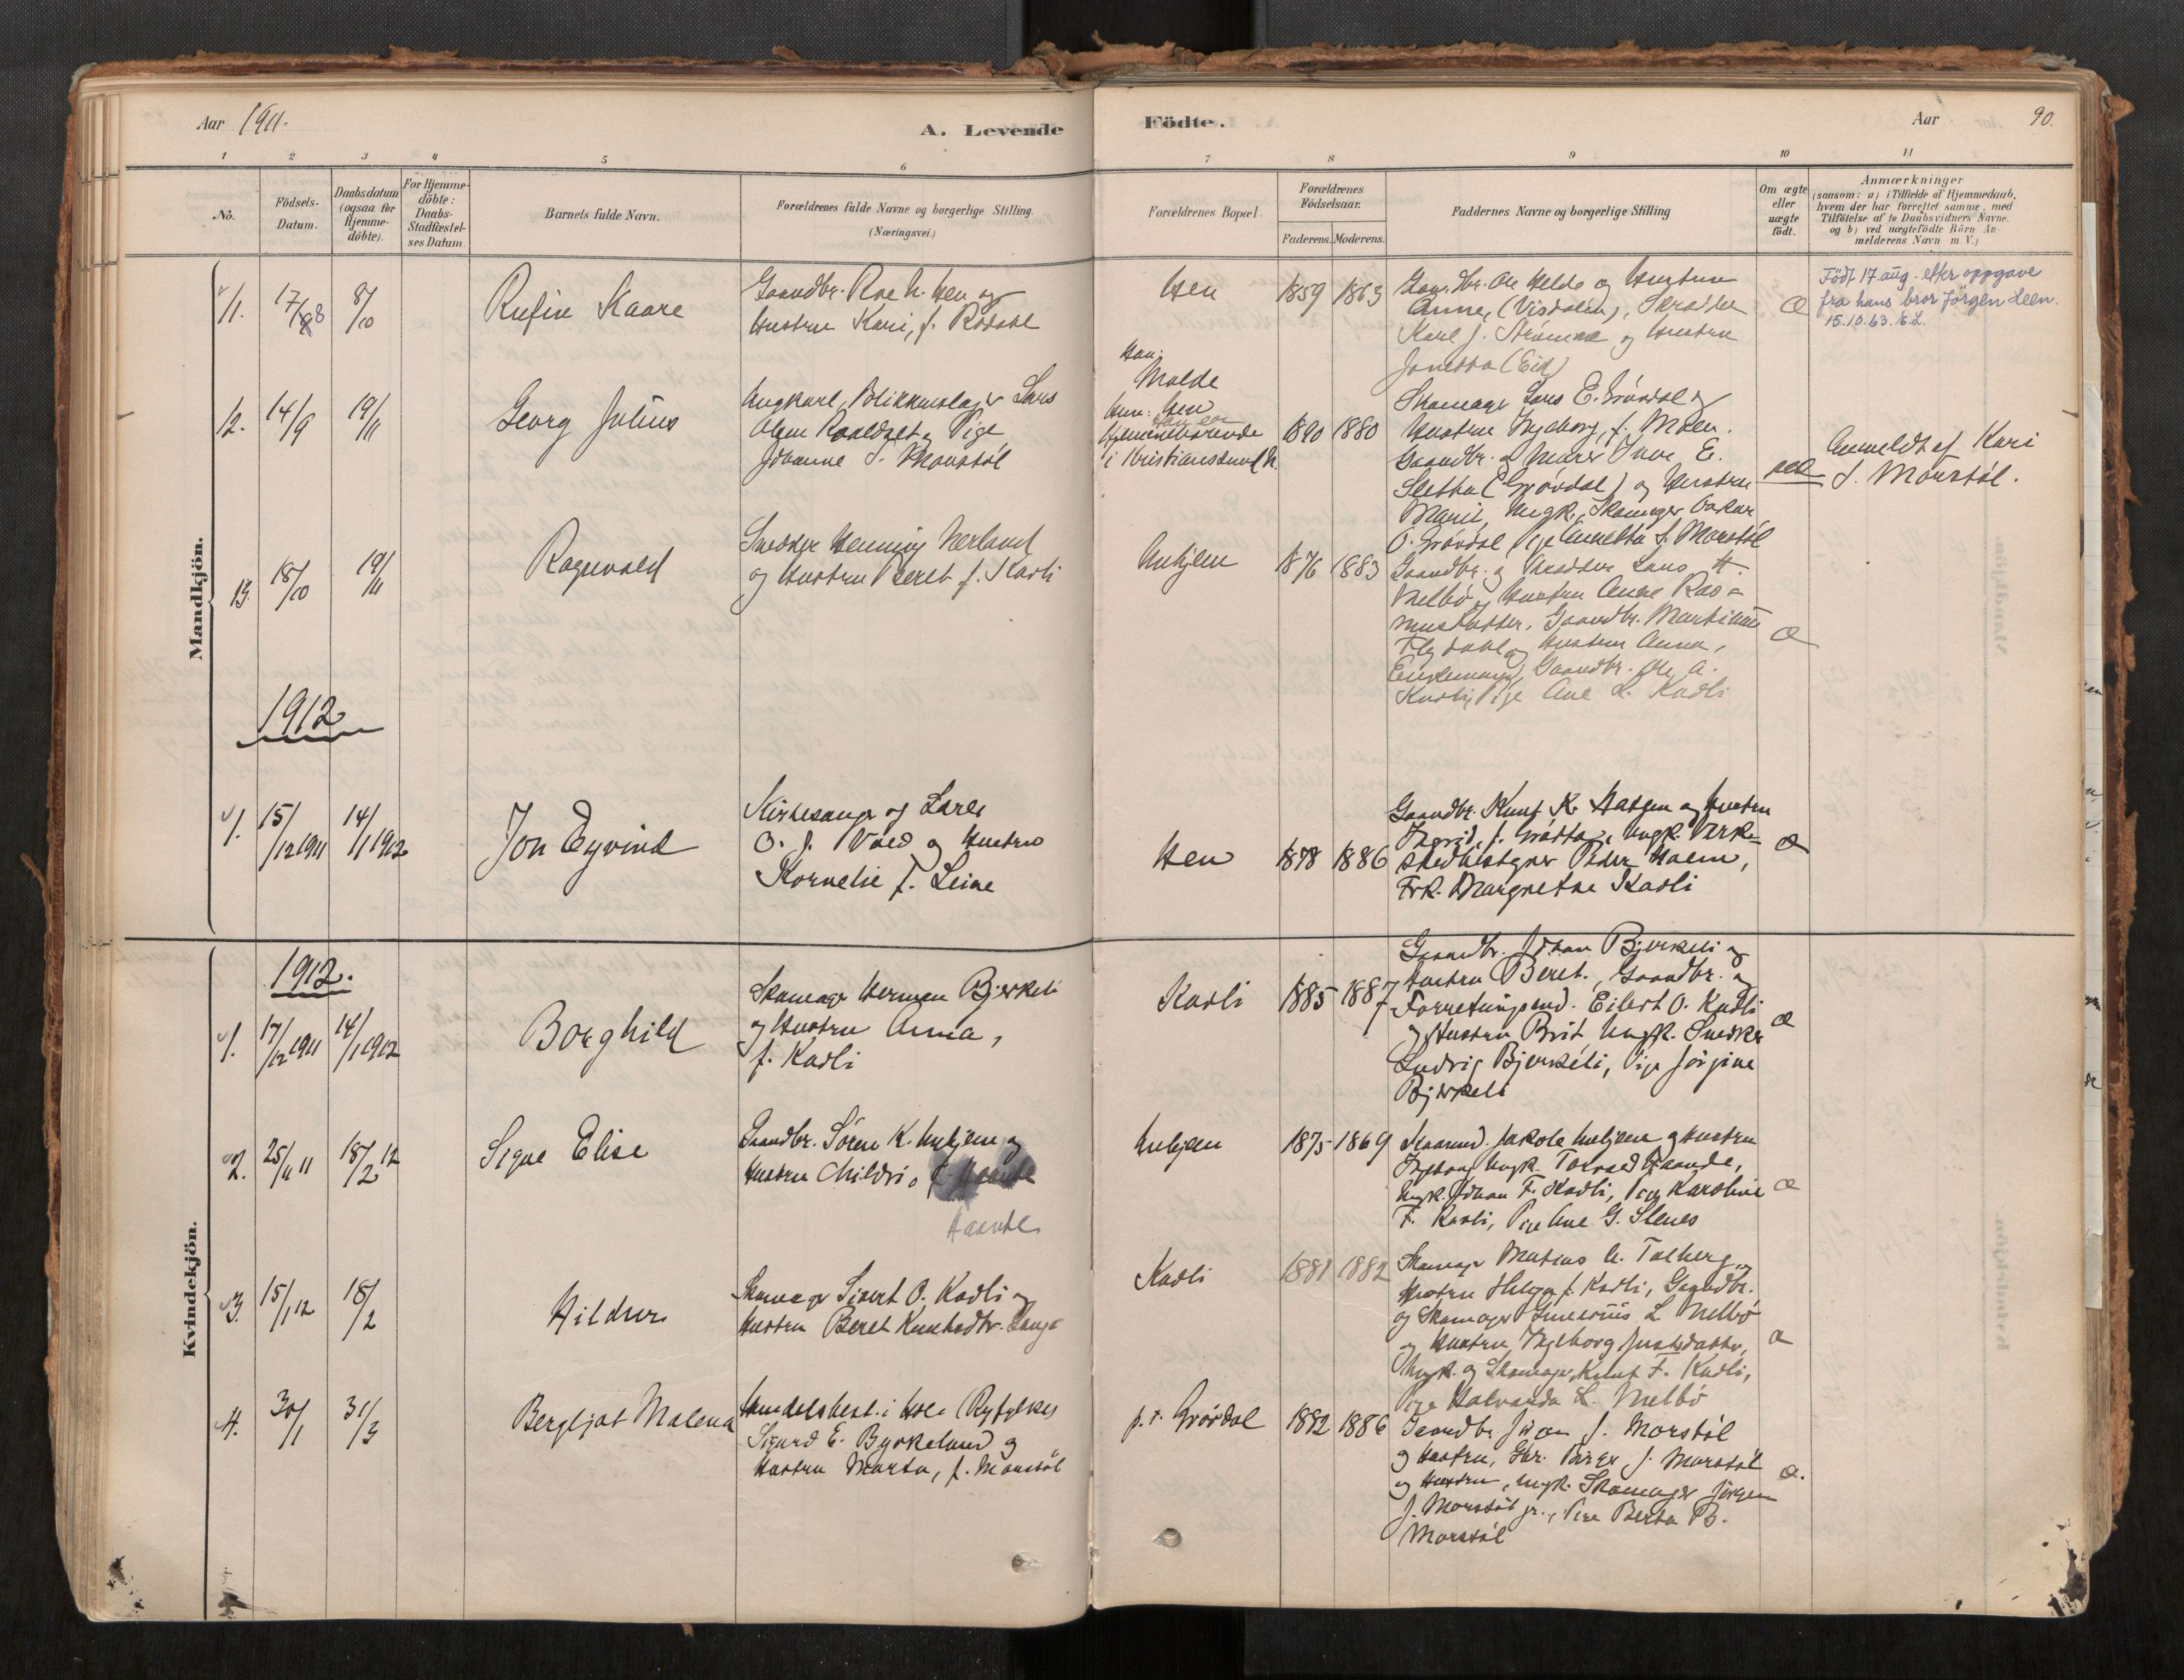 Aar 1911.
A. Levende
Födte.
Aar
90.
1 2 3 4 5 6 7 8 9 10 11
No.
Födsels-
Datum.
Daabsdatum
(ogsaa for
Hjemme-
döbte).
For Hjemme-
döbte:
Daabs-
Stadfæstel-
ses Datum.
Barnets fulde Navn.
Forældrenes fulde Navne og borgerlige Stilling.
(Næringsvei.)
Forældrenes Bopæl.
Forældrenes
Födselsaar.
Faderens. Moderens.
Faddernes Navne og borgerlige Stilling
Om ægte
eller
uægte
födt.
Anmærkninger
(saasom: a) i Tilfælde af Hjemmedaab,
hvem der har forrettet samme, med
Tilföielse af to Daabsvidners Navne.
og b) ved uægtefödte Börn An-
melderens Navn m.V.)
Mandkjön.
11. 17/8 8/10
Rufin Kaare
Gaardbr. Roe N. Hen og
Hustru Kari, f. Rödahl
Hen
1859 1863
Gaardbr. Ole Helde og Hustru
Anne, (Visdalen), Skrædder
Karl J. Strömme og Hustru
Jonetta (Eid)
Æ
Födt 17. aug. etter oppgave
fra hans bror Jörgen Heen.
15.10.63. E.L.
12. 14/9 19/11
Georg Julius
Ungkarl, Blikkenslager Lars
Olsen Roaldset og Pige
Johanne J. Monstöl
Han:
Molde
Hun: Hen
Hjemmehörende
i Kristiansund N.
1890 1880
Skomager Lars E. Grövdal og
Hustru Ingeborg, f. Moen.
Gaardbr. og Murer Iver E.
Sletta (Grövdal) og Hustru
Marit, Ungk. Skomager Oskar
O. Grövdal, Pige Annetta J. Monstöl
uæ
Anmeldt af Kari
J. Monstöl.
13. 18/10 19/11
Ragnvald
Snedker Henning Nerland
og Hustru Beret f. Kavli
Unhjem
1876 1883
Gaardbr. og Skrædder Lars H.
Melbö og Hustru Anne Ras-
musdatter, Gaardbr. Martinus
Flydahl og Hustru Anna,
Enkemand, Gaardbr. Ole A.
Kavli, Pige Ane L. Kavli
Æ
1912
1. 15/12 1911 14/1 1912
Jon Eyvind
Kirkesanger og Lærer
O. J. Voed og Hustru
Kornelie f. Leine
Hen
1878 1886
Gaardbr. Knut K. Hatgen og Hustru
Ingrid, f. Grötta, Ungk. Verk-
stedbestyrer Peder Hoem,
Frk. Margrethe Kavli
Æ
Kvindekjön.
1912.
1. 17/12 1911 14/1 1912
Borghild
Skomager Herman Bjerkeli
og Hustru Anna,
f. Kavli
Kavli
1885 1887
Gaardbr. Johan Bjerkeli og
Hustru Beret, Gaardbr. og
Forretningsmd. Eilert O. Kavli
og Hustru Brit, Ungk. Snedker
Ludvig Bjerkeli, Pige Jörgine
Bjerkeli
Æ
2. 25/11 11 18/2 12
Signe Elise
Gaardbr. Sören K. Unhjem og
Hustru Mildri,
Haande
Unhjem
1875 1869
Kaarmd. Jakob Unhjem og Hustru
Ingeborg, Ungk. Torvald Haande,
Ungk. Johan F. Kavli, Pige Karoline
F. Kavli, Pige Ane G. Stenes
Æ
3. 15/1 12 18/2
Hildur
Skomager Sivert O. Kavli og
Hustru Beret Knutsdtr.
Kavli
1881 1882
Skomager Matias A. Talberg og
Hustru Helga f. Kavli, Gaardbr.
og Skomager L. Melbö
og Hustru Ingeborg
Ungk. og Skomager Knut F. Kavli,
Pige Halvarda L. Melbö
Æ
4. 30/1 31/3
Bergljot Malena
Handelsbest. i Hole (Ryfylke)
Sigurd E. Byrkeland og
Hustru Marta, f. Monstöl
p.t. Grövdal
1882 1886
Gaardbr. Jöran J. Morstöl
og Hustru, Gbr. Birger J. Morstöl
og Hustru, Ungk. Skomager Jörgen
J. Morstöl jr., Pige Berta B.
Morstöl
Æ.